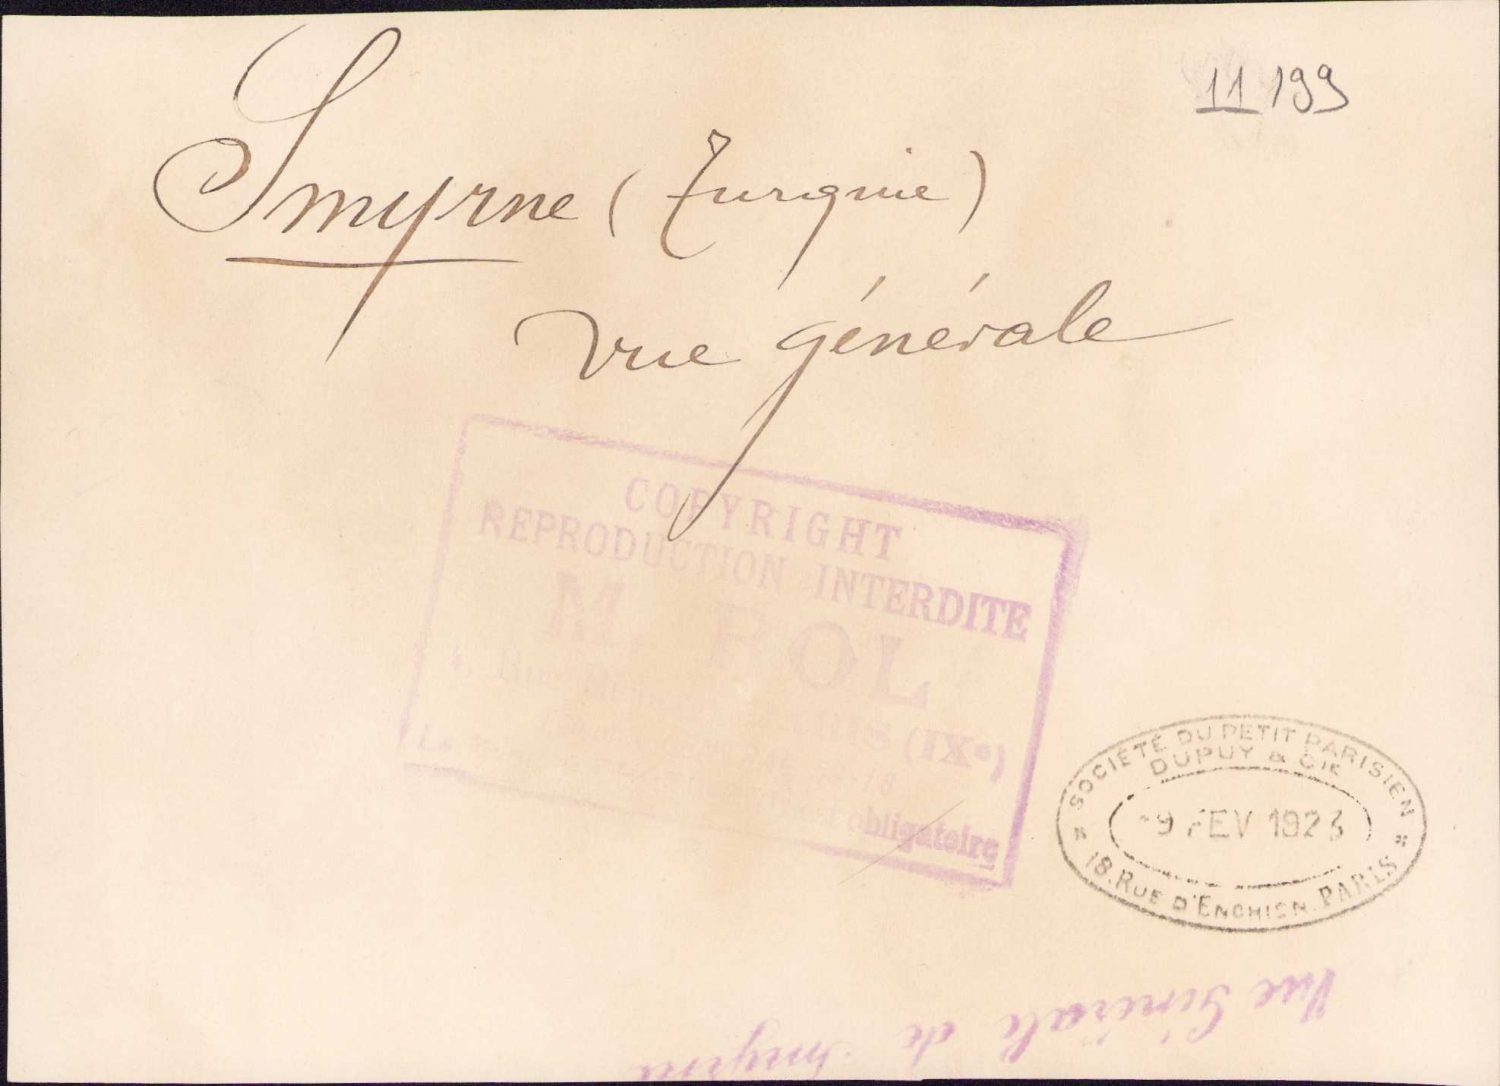 11 199
Smyrne (Turquie)
vue générale
COPYRIGHT
REPRODUCTION INTERDITE
M. ROL
4, Rue (IXe)
18
est obligatoire
SOCIÉTÉ DU PETIT PARISIEN
DUPUY & CIE
-9 FEV 1923
18. RUE D'ENGHIEN. PARIS
Vue Générale de Smyrne